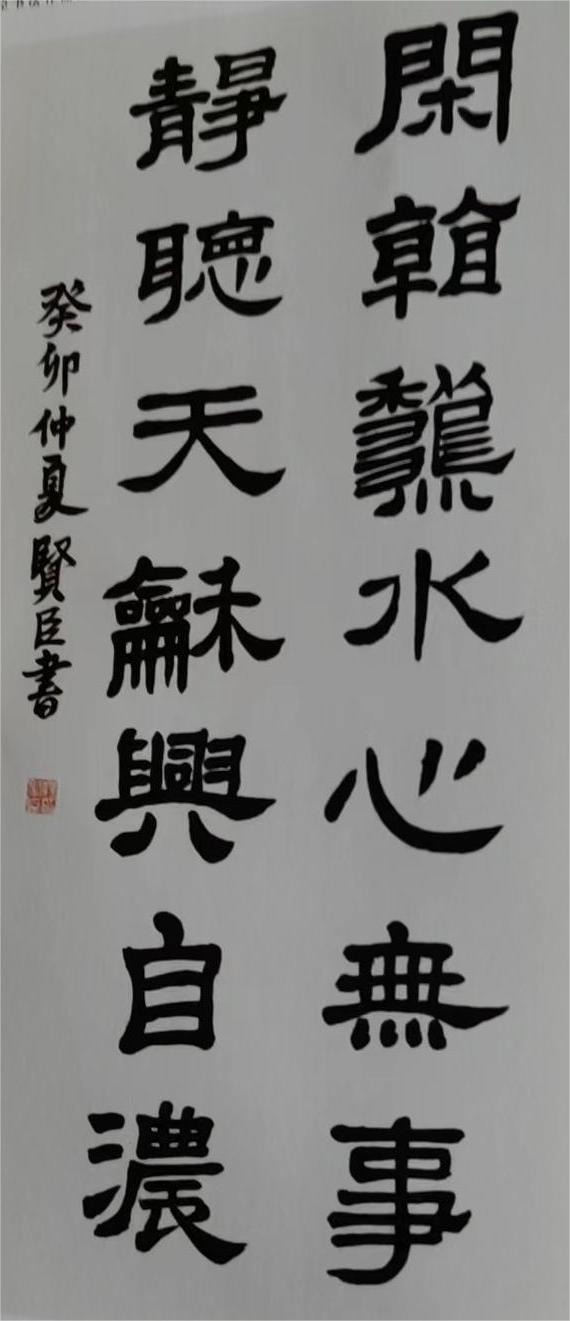 閑龝水心無事
靜聽天龢興自濃
癸卯仲夏賢臣書